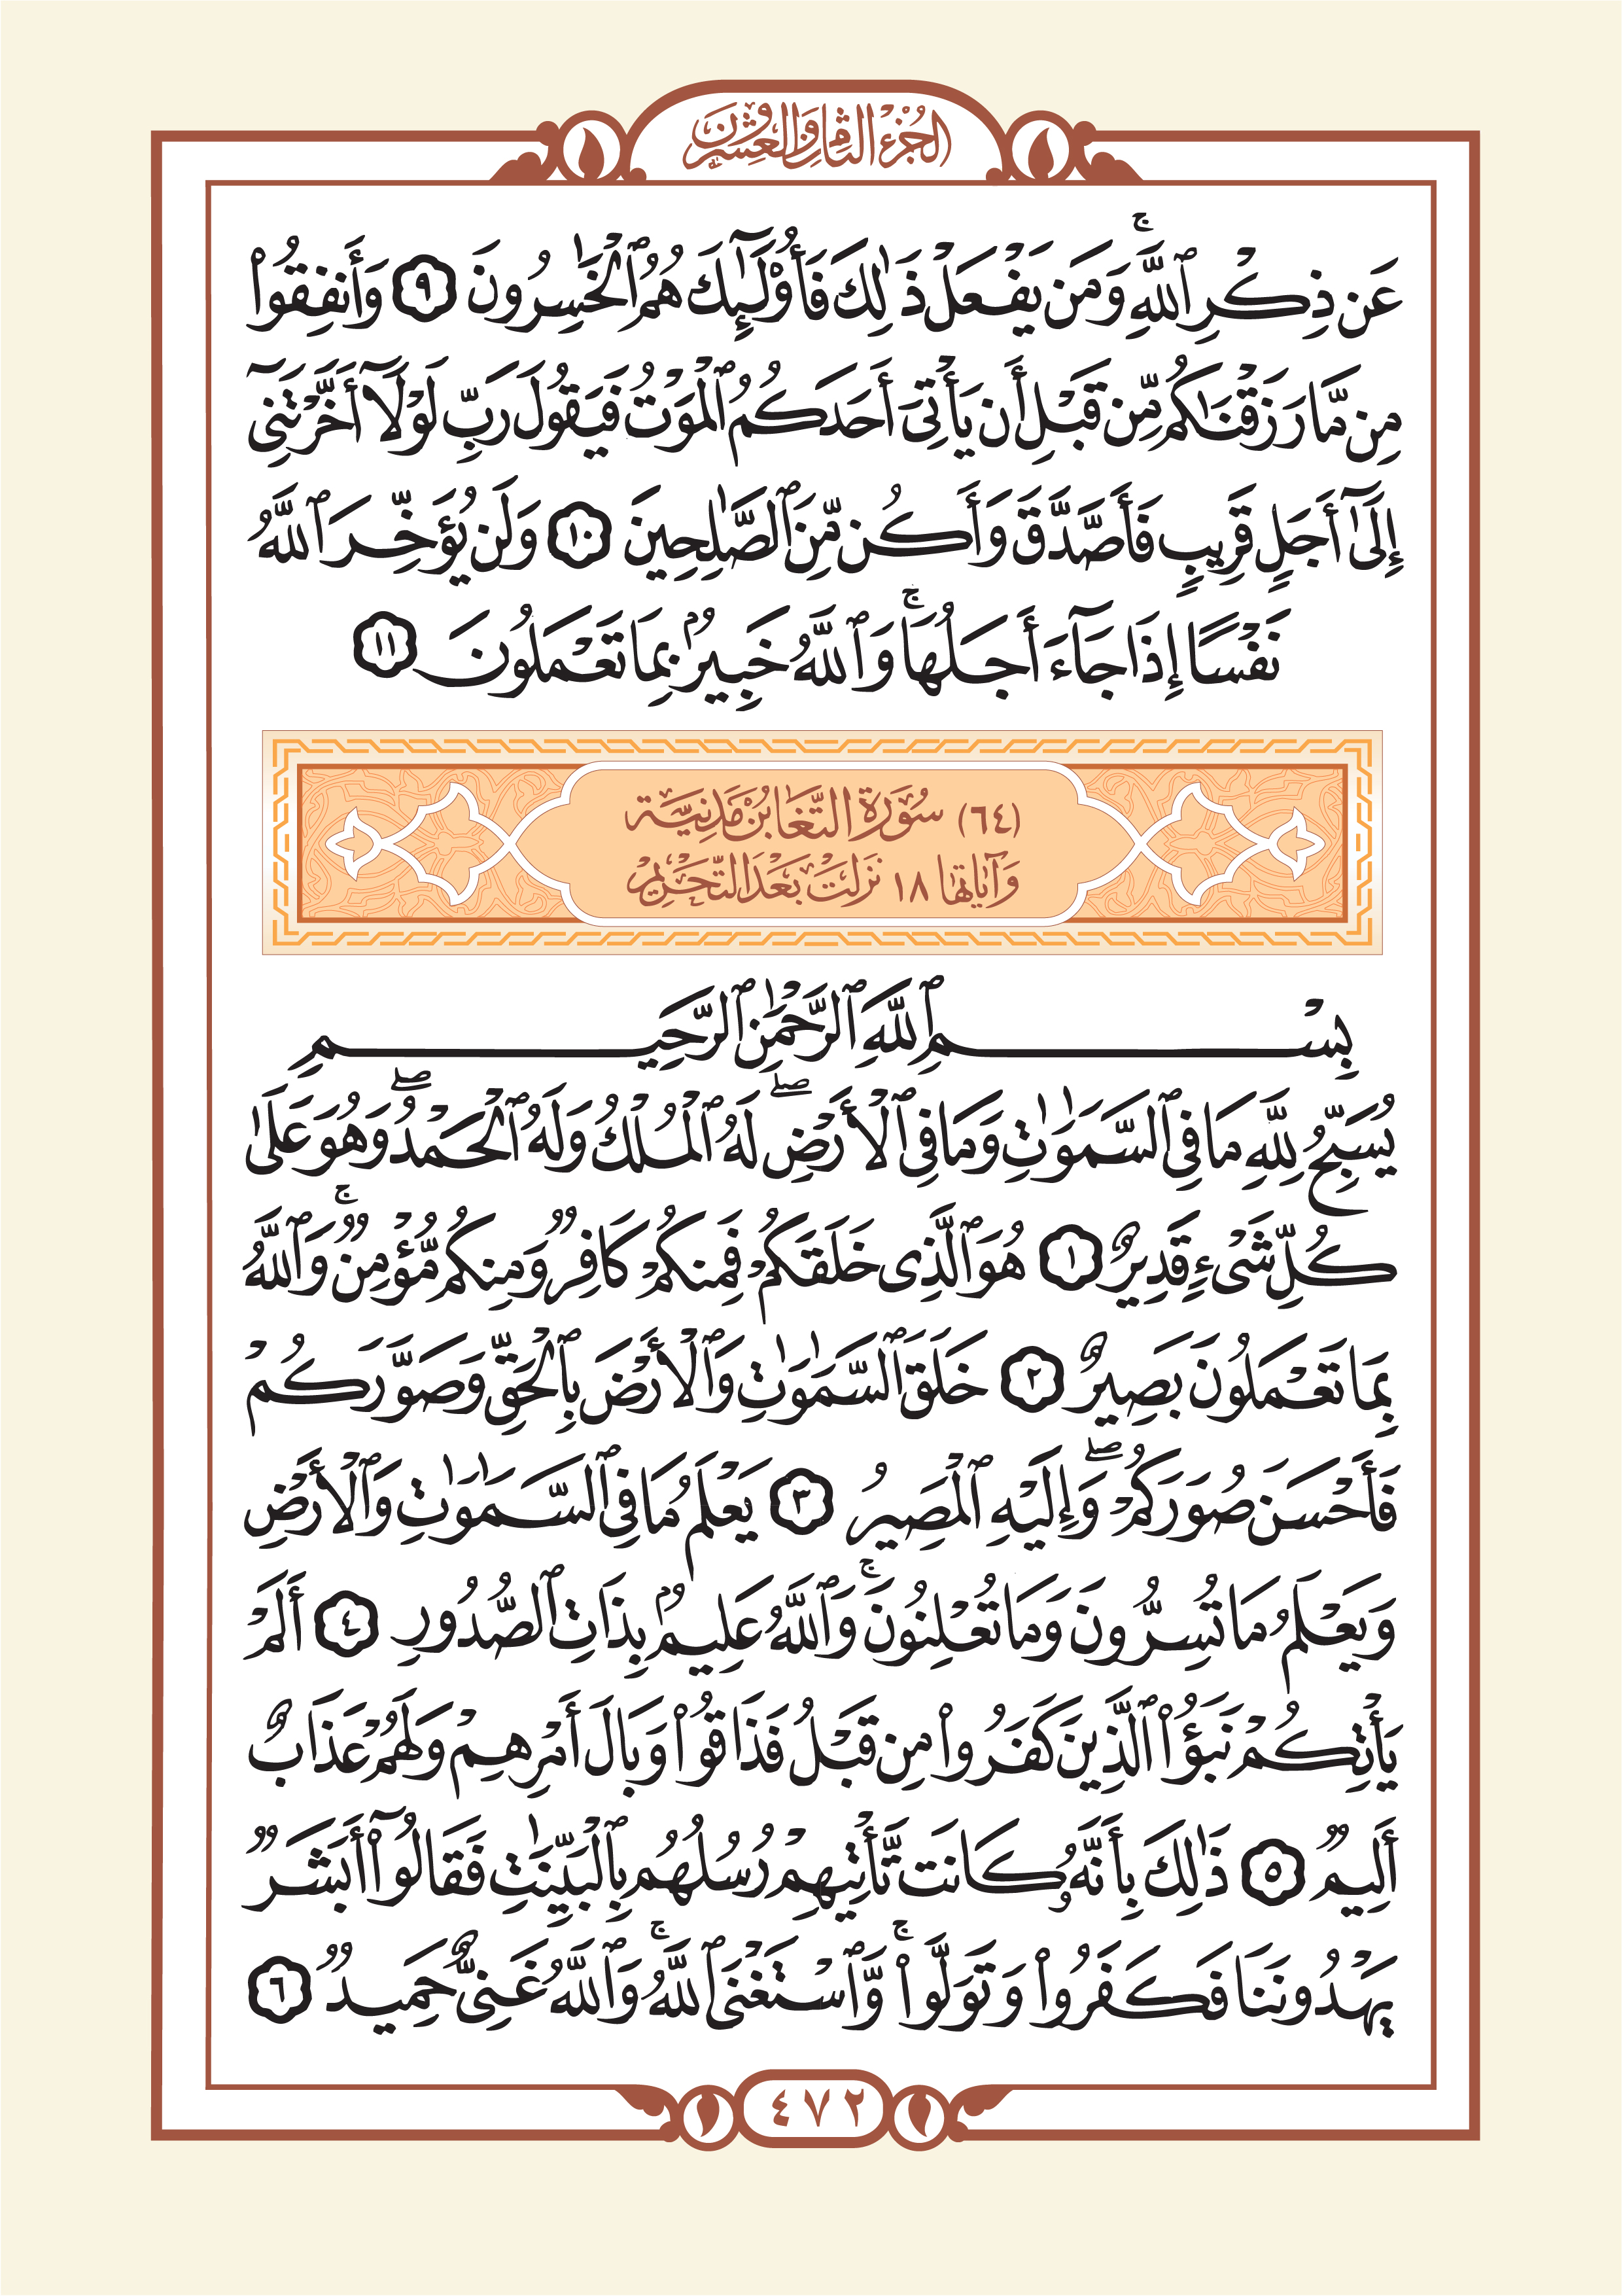 الجزء الثامن والعشرون
عَن ذِكْرِ ٱللَّهِۚ وَمَن يَفْعَلْ ذَٰلِكَ فَأُو۟لَـٰٓئِكَ هُمُ ٱلْخَـٰسِرُونَ ٩ وَأَنفِقُوا۟
مِن مَّا رَزَقْنَـٰكُم مِّن قَبْلِ أَن يَأْتِىَ أَحَدَكُمُ ٱلْمَوْتُ فَيَقُولَ رَبِّ لَوْلَآ أَخَّرْتَنِىٓ
إِلَىٰٓ أَجَلٍ قَرِيبٍ فَأَصَّدَّقَ وَأَكُن مِّنَ ٱلصَّـٰلِحِينَ ١٠ وَلَن يُؤَخِّرَ ٱللَّهُ
نَفْسًا إِذَا جَآءَ أَجَلُهَاۚ وَٱللَّهُ خَبِيرٌۢ بِمَا تَعْمَلُونَ ١١
(٦٤) سُورَةُ التَّغَابُنِ مَدَنِيَّة
وَآيَاتهَا ١٨ نَزَلَتْ بَعْدَ التَّحْرِيمِ
بِسْمِ ٱللَّهِ ٱلرَّحْمَـٰنِ ٱلرَّحِيمِ
يُسَبِّحُ لِلَّهِ مَا فِى ٱلسَّمَـٰوَٰتِ وَمَا فِى ٱلْأَرْضِۖ لَهُ ٱلْمُلْكُ وَلَهُ ٱلْحَمْدُۖ وَهُوَ عَلَىٰ
كُلِّ شَىْءٍ قَدِيرٌ ١ هُوَ ٱلَّذِى خَلَقَكُمْ فَمِنكُمْ كَافِرٌ وَمِنكُم مُّؤْمِنٌۚ وَٱللَّهُ
بِمَا تَعْمَلُونَ بَصِيرٌ ٢ خَلَقَ ٱلسَّمَـٰوَٰتِ وَٱلْأَرْضَ بِٱلْحَقِّ وَصَوَّرَكُمْ
فَأَحْسَنَ صُوَرَكُمْۖ وَإِلَيْهِ ٱلْمَصِيرُ ٣ يَعْلَمُ مَا فِى ٱلسَّمَـٰوَٰتِ وَٱلْأَرْضِ
وَيَعْلَمُ مَا تُسِرُّونَ وَمَا تُعْلِنُونَۚ وَٱللَّهُ عَلِيمٌۢ بِذَاتِ ٱلصُّدُورِ ٤ أَلَمْ
يَأْتِكُمْ نَبَؤُا۟ ٱلَّذِينَ كَفَرُوا۟ مِن قَبْلُ فَذَاقُوا۟ وَبَالَ أَمْرِهِمْ وَلَهُمْ عَذَابٌ
أَلِيمٌ ٥ ذَٰلِكَ بِأَنَّهُۥ كَانَت تَّأْتِيهِمْ رُسُلُهُم بِٱلْبَيِّنَـٰتِ فَقَالُوٓا۟ أَبَشَرٌ
يَهْدُونَنَا فَكَفَرُوا۟ وَتَوَلَّوا۟ۚ وَّٱسْتَغْنَى ٱللَّهُۚ وَٱللَّهُ غَنِىٌّ حَمِيدٌ ٦
٤٧٢